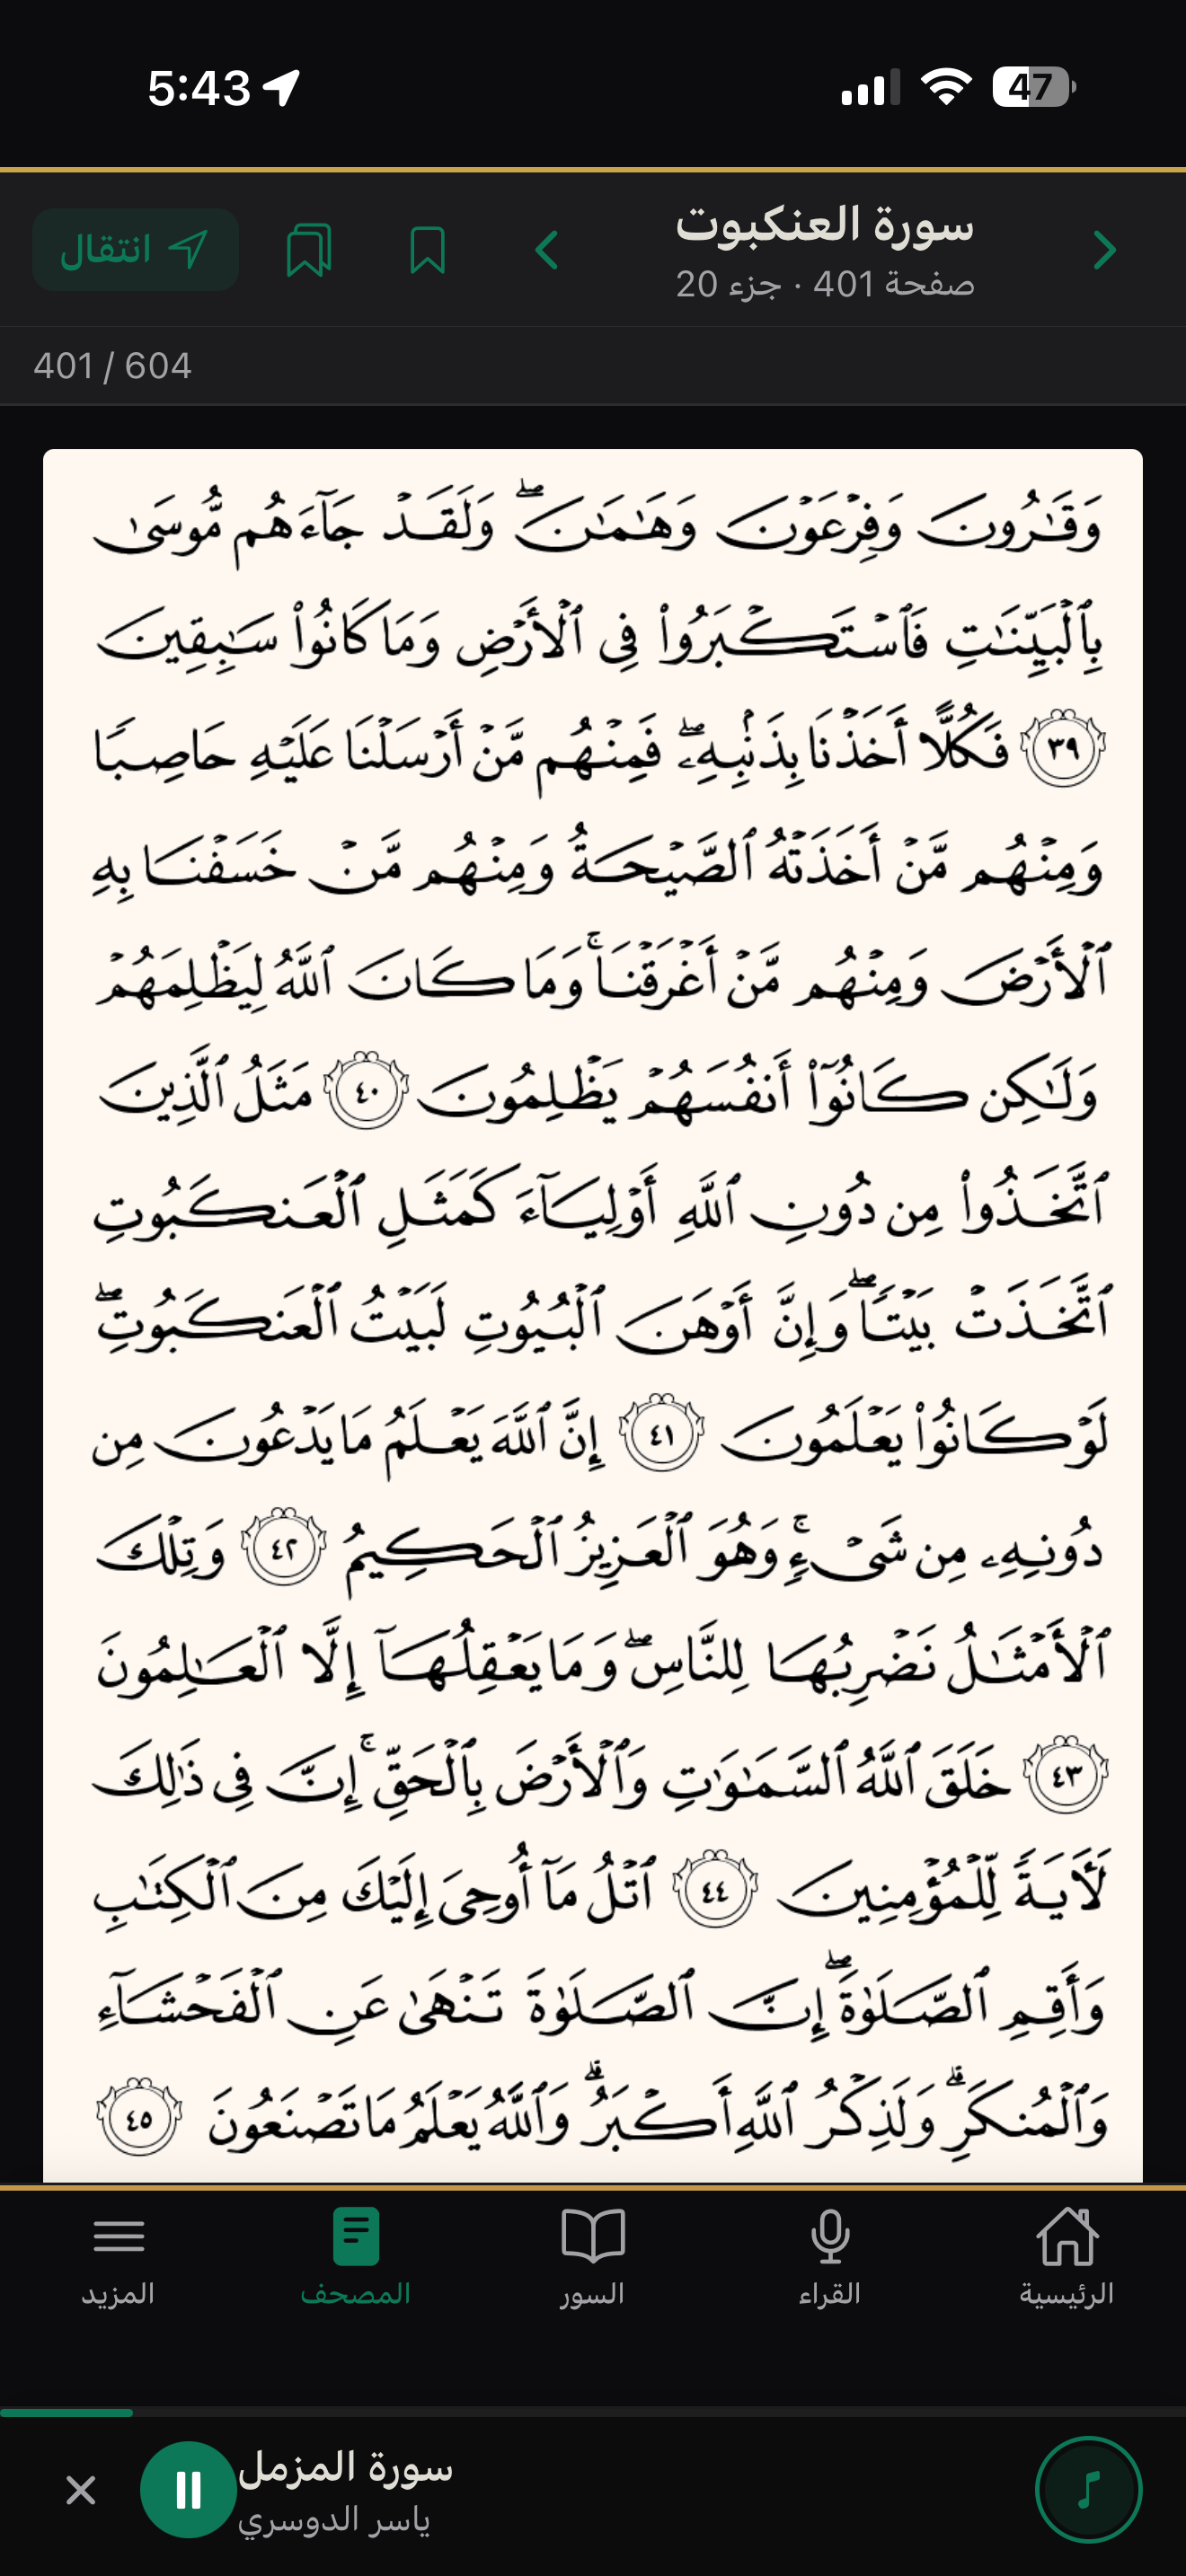 5:43
47
سورة العنكبوت
صفحة 401 · جزء 20
انتقال
401 / 604
وَقَـٰرُونَ وَفِرۡعَوۡنَ وَهَـٰمَـٰنَۖ وَلَقَدۡ جَآءَهُم مُّوسَىٰ
بِٱلۡبَيِّنَـٰتِ فَٱسۡتَكۡبَرُوا۟ فِى ٱلۡأَرۡضِ وَمَا كَانُوا۟ سَـٰبِقِينَ
٣٩ فَكُلًّا أَخَذۡنَا بِذَنۢبِهِۦۖ فَمِنۡهُم مَّنۡ أَرۡسَلۡنَا عَلَيۡهِ حَاصِبًا
وَمِنۡهُم مَّنۡ أَخَذَتۡهُ ٱلصَّيۡحَةُ وَمِنۡهُم مَّنۡ خَسَفۡنَا بِهِ
ٱلۡأَرۡضَ وَمِنۡهُم مَّنۡ أَغۡرَقۡنَاۚ وَمَا كَانَ ٱللَّهُ لِيَظۡلِمَهُمۡ
وَلَـٰكِن كَانُوٓا۟ أَنفُسَهُمۡ يَظۡلِمُونَ ٤٠ مَثَلُ ٱلَّذِينَ
ٱتَّخَذُوا۟ مِن دُونِ ٱللَّهِ أَوۡلِيَآءَ كَمَثَلِ ٱلۡعَنكَبُوتِ
ٱتَّخَذَتۡ بَيۡتًاۖ وَإِنَّ أَوۡهَنَ ٱلۡبُيُوتِ لَبَيۡتُ ٱلۡعَنكَبُوتِۖ
لَوۡ كَانُوا۟ يَعۡلَمُونَ ٤١ إِنَّ ٱللَّهَ يَعۡلَمُ مَا يَدۡعُونَ مِن
دُونِهِۦ مِن شَىۡءٍۚ وَهُوَ ٱلۡعَزِيزُ ٱلۡحَكِيمُ ٤٢ وَتِلۡكَ
ٱلۡأَمۡثَـٰلُ نَضۡرِبُهَا لِلنَّاسِۖ وَمَا يَعۡقِلُهَآ إِلَّا ٱلۡعَـٰلِمُونَ
٤٣ خَلَقَ ٱللَّهُ ٱلسَّمَـٰوَٰتِ وَٱلۡأَرۡضَ بِٱلۡحَقِّۚ إِنَّ فِى ذَٰلِكَ
لَـَٔايَةً لِّلۡمُؤۡمِنِينَ ٤٤ ٱتۡلُ مَآ أُوحِىَ إِلَيۡكَ مِنَ ٱلۡكِتَـٰبِ
وَأَقِمِ ٱلصَّلَوٰةَۖ إِنَّ ٱلصَّلَوٰةَ تَنۡهَىٰ عَنِ ٱلۡفَحۡشَآءِ
وَٱلۡمُنكَرِۗ وَلَذِكۡرُ ٱللَّهِ أَكۡبَرُۗ وَٱللَّهُ يَعۡلَمُ مَا تَصۡنَعُونَ ٤٥
الرئيسية
القراء
السور
المصحف
المزيد
سورة المزمل
ياسر الدوسري